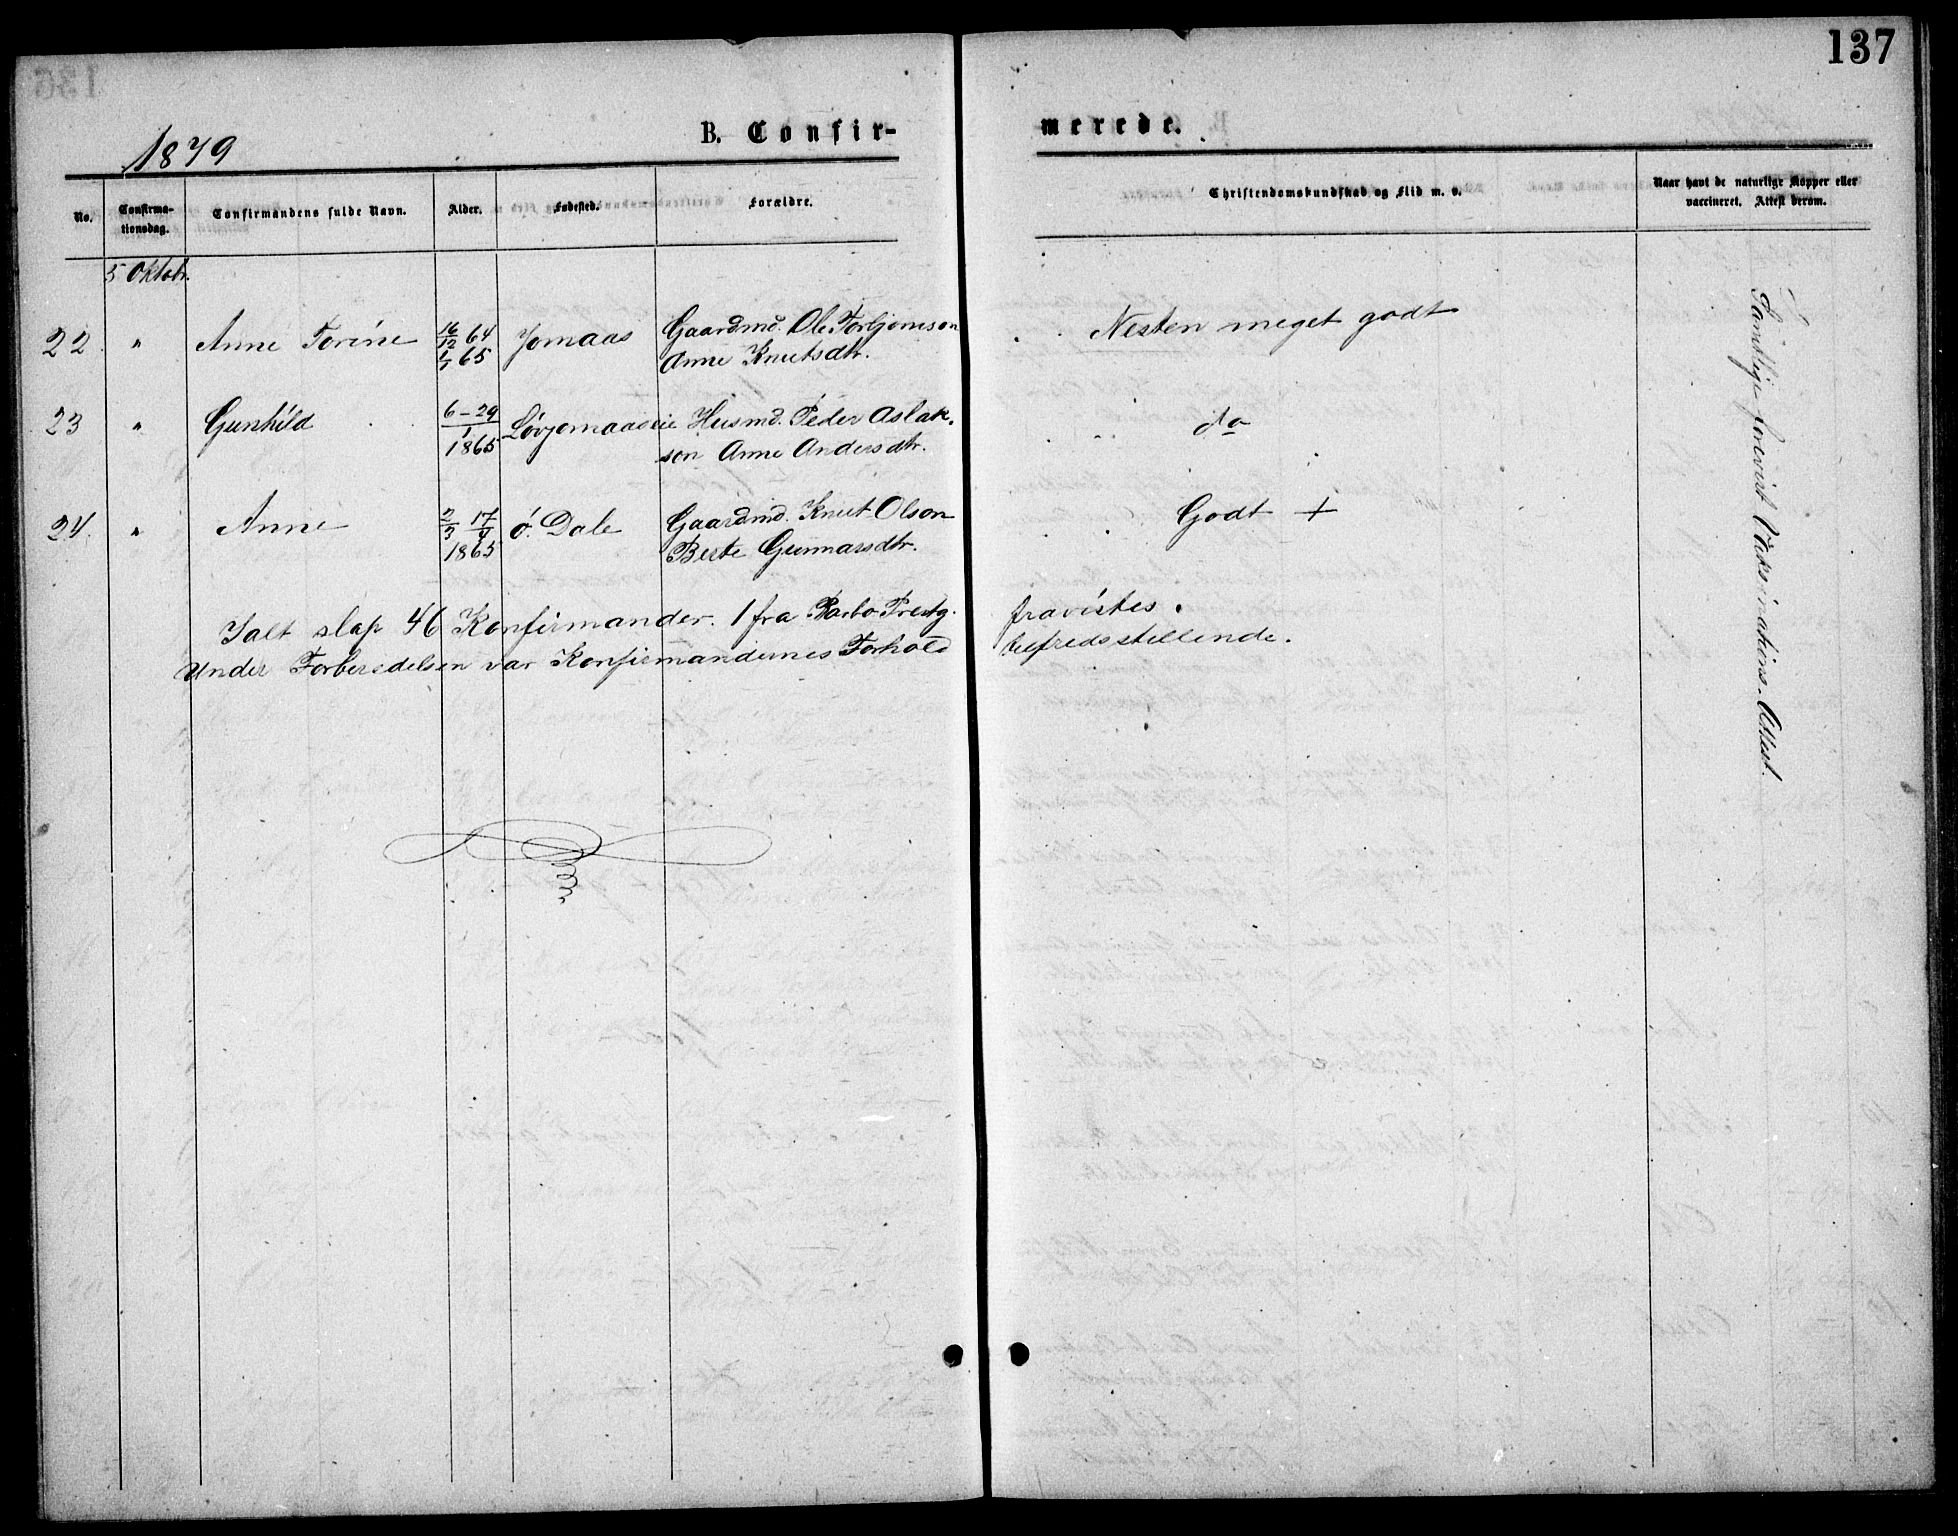 137
1879
B. Confir-
merede.
No.
Confirma-
tionsdag.
Confirmandens fulde Navn.
Alder.
Fødested.
Forældre.
Christendomskundskab og Flid m. v.
Naar havt de naturlige Kopper eller
vaccineret. Attest derom.
5 Oktobr.
22 " Anne Torine 16/12 64 Jomaas Gaardmd. Ole Torbjørnson Nesten meget godt
1/1 65 Anne Knutsdtr.
23 " Gunhild 6 – 29 Løvjomaaseie Husmd. Peder Aslak- do
1
1865 son Anne Andersdtr.
24. " Anne 2/3 17/4 ø. Dale Gaardmd. Knut Olson Godt +
1865 Berte Gunnarsdtr.
Ialt slap 46 Konfirmander. 1 fra Prestg. fravistes.
Under Forberedelsen var Konfirmandernes Forhold tilfredsstillende.
Samtlige forevist Vaksinations-Attest.